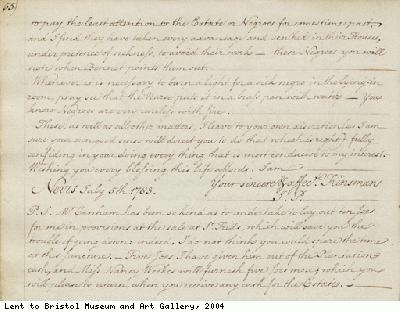 63
to pay the least attention to the Estate or Negroes for sometime past,
and I find they have taken every advantage and in their Houses,
under pretence of sickness, to avoid their work — these Negroes you will
note when Boniest points them out.
Wherever it is necessary to burn a light for a sick negro in the lying in
room, pray see that the Nurse puts it in a pan with water — You
know Negroes are very careless with fire.
These, as well as all other matters, I leave to your own discretion, as I am
sure your own good sense will direct you to do that which is right & fully
confiding in your doing every thing that is most conducive to my interest.
Wishing you every blessing this life affords. I am
Your sincere & affect. Kinsman
Nevis July 5th 1783. J. P.
P.S. Mr has been so kind as to undertake to lay out ten Joes
for me in provisions at the sale at St. Kitts, which will save you the
trouble of going down: indeed, I do not think you could spare the time
at this juncture. — Five Joes I have given him out of the Plantation
cash, and Miss Nancy Weekes will furnish five Joes more, which you
will please to return when you receive any cash for the Estate. —
Lent to Bristol Museum and Art Gallery, 2004